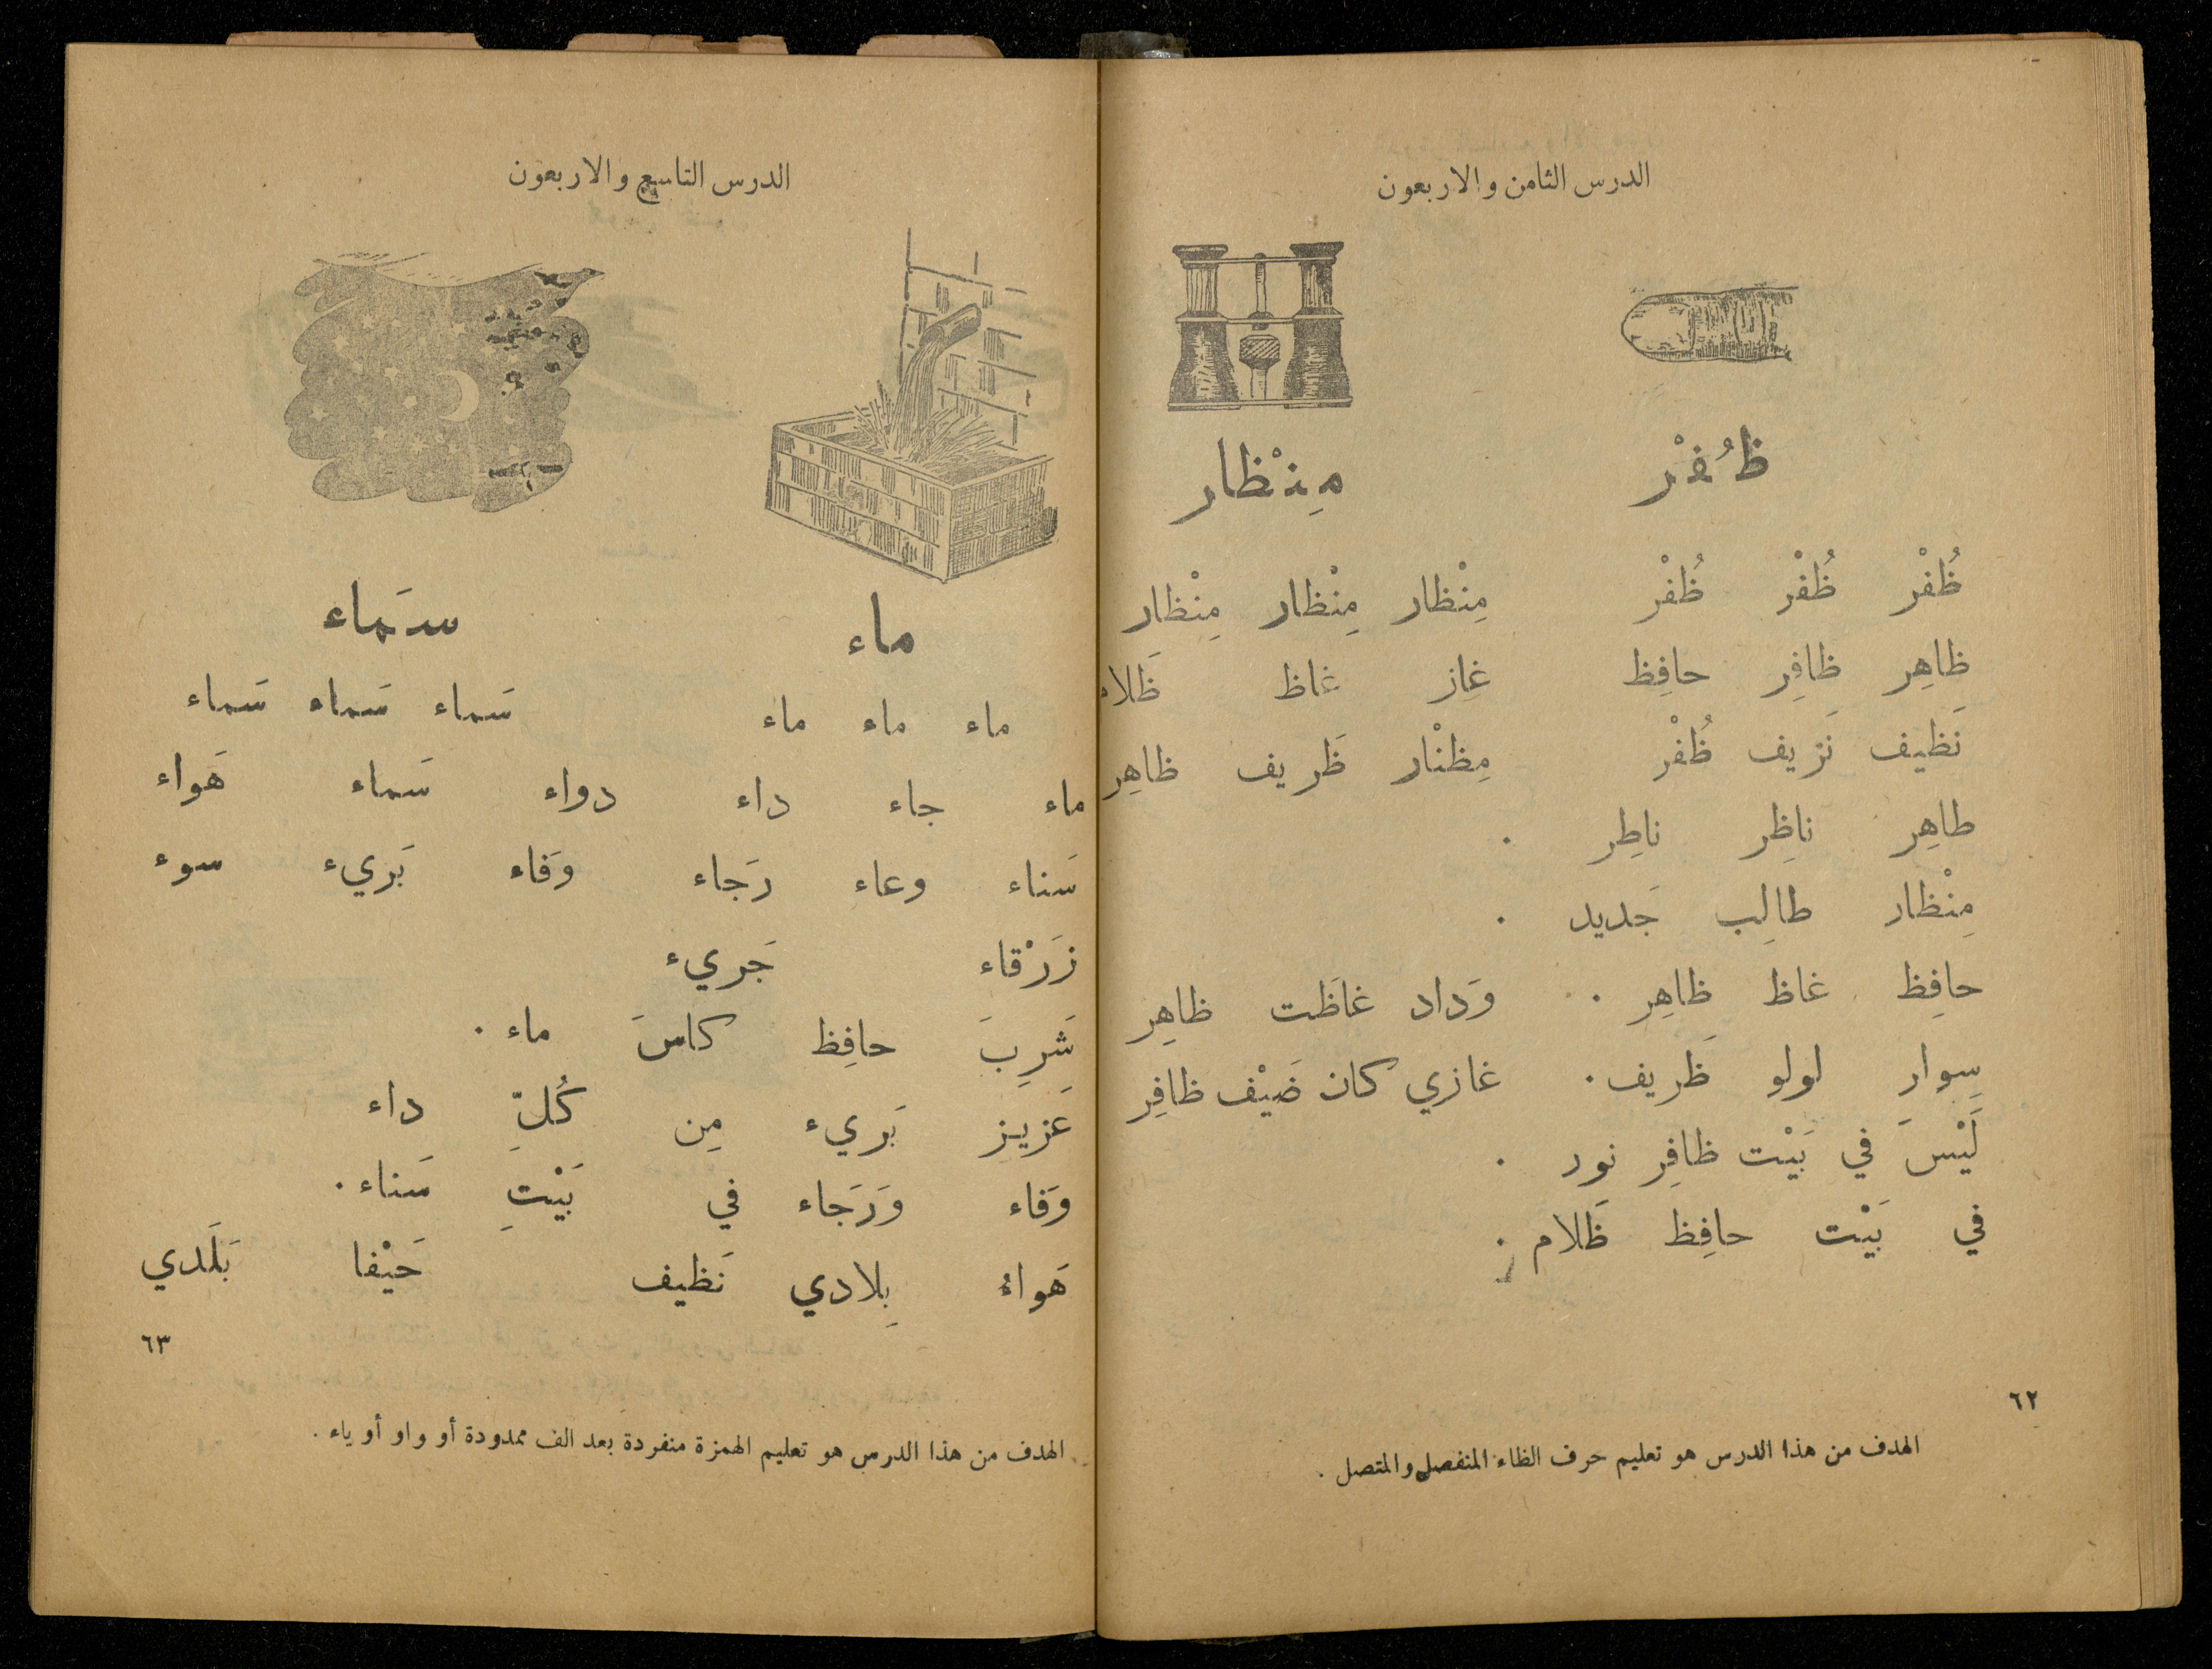 الدرس الثامن والاربعون
ظُفْر مِنْظار
ظُفْر ظُفْر ظُفْر مِنْظار مِنْظار مِنْظار
ظاهِر ظافِر حافِظ غاز غاظ ظَلام
نَظيف نَزيف ظُفْر مِظنْار ظَريف ظاهِر
طاهِر ناظِر ناطِر .
مِنْظار طالِب جَديد .
حافِظ غاظ ظاهِر . وَداد غاظَت ظاهِر
سِوار لولو ظَريف . غازي كان ضَيْف ظافِر
لَيْسَ في بَيْت ظافِر نور .
في بَيْت حافِظ ظَلام .
٦٢
الهدف من هذا الدرس هو تعليم حرف الظاء المنفصل والمتصل .
الدرس التاسع والاربعون
ماء سَماء
ماء ماء ماء سَماء سَماء سَماء
ماء جاء داء دواء سَماء هَواء
سَناء وعاء رَجاء وَفاء بَريء سوء
زَرْقاء جَريء
شَرِبَ حافِظ كاسَ ماء .
عَزيز بَريء مِن كُلِّ داء
وَفاء وَرَجاء في بَيْتِ سَناء .
هَواءُ بِلادي نَظيف حَيْفا بَلَدي
٦٣
الهدف من هذا الدرس هو تعليم الهمزة منفردة بعد الف ممدودة أو واو أو ياء .